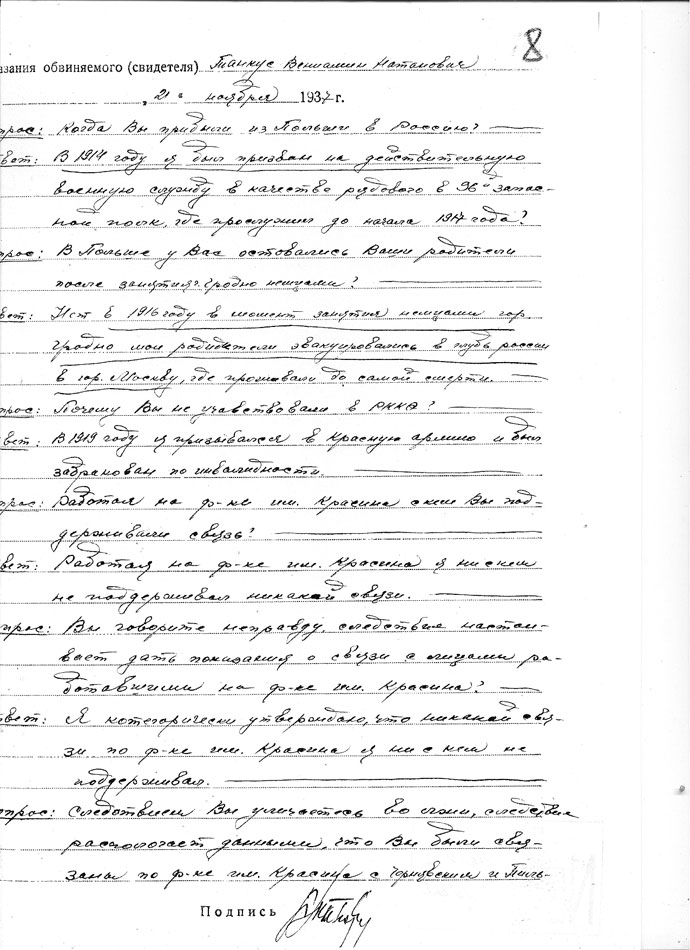 8
азания обвиняемого (свидетеля) Танкус Вениамин Натанович
"21" ноября 1937 г.
прос: Когда Вы прибыли из Польши в Россию?
вет: В 1914 году я был призван на действительную
военную службу в качестве рядового в 96й запас-
ной полк, где прослужил до начала 1917 года?
рос: В Польше у Вас оставались Ваши родители
после занятия г. Гродно немцами?
вет: Нет в 1916 году в момент занятия немцами гор.
Гродно мои родители эвакуировались в глубь россии
в гор. Москву, где проживали до самой смерти.
прос: Почему Вы не учавствовали в РККА?
вет: В 1919 году я призывался в Красную армию и был
забракован по инвалидности.
прос: Работая на ф-ке им. Красина с кем Вы под-
держивали связь?
вет: Работая на ф-ке им. Красина я ни с кем
не поддерживал никакой связи.
прос: Вы говорите неправду, следствие настаи-
вает дать показания о связи с лицами ра-
ботавшими на ф-ке им. Красина?
твет: Я категорически утверждаю, что никакой свя-
зи по ф-ке им. Красина я ни с кем не
поддерживал.
опрос: Следствием Вы уличаетесь во лжи, следствие
располагает данными, что Вы были свя-
заны по ф-ке им. Красина с и Пиль-
Подпись